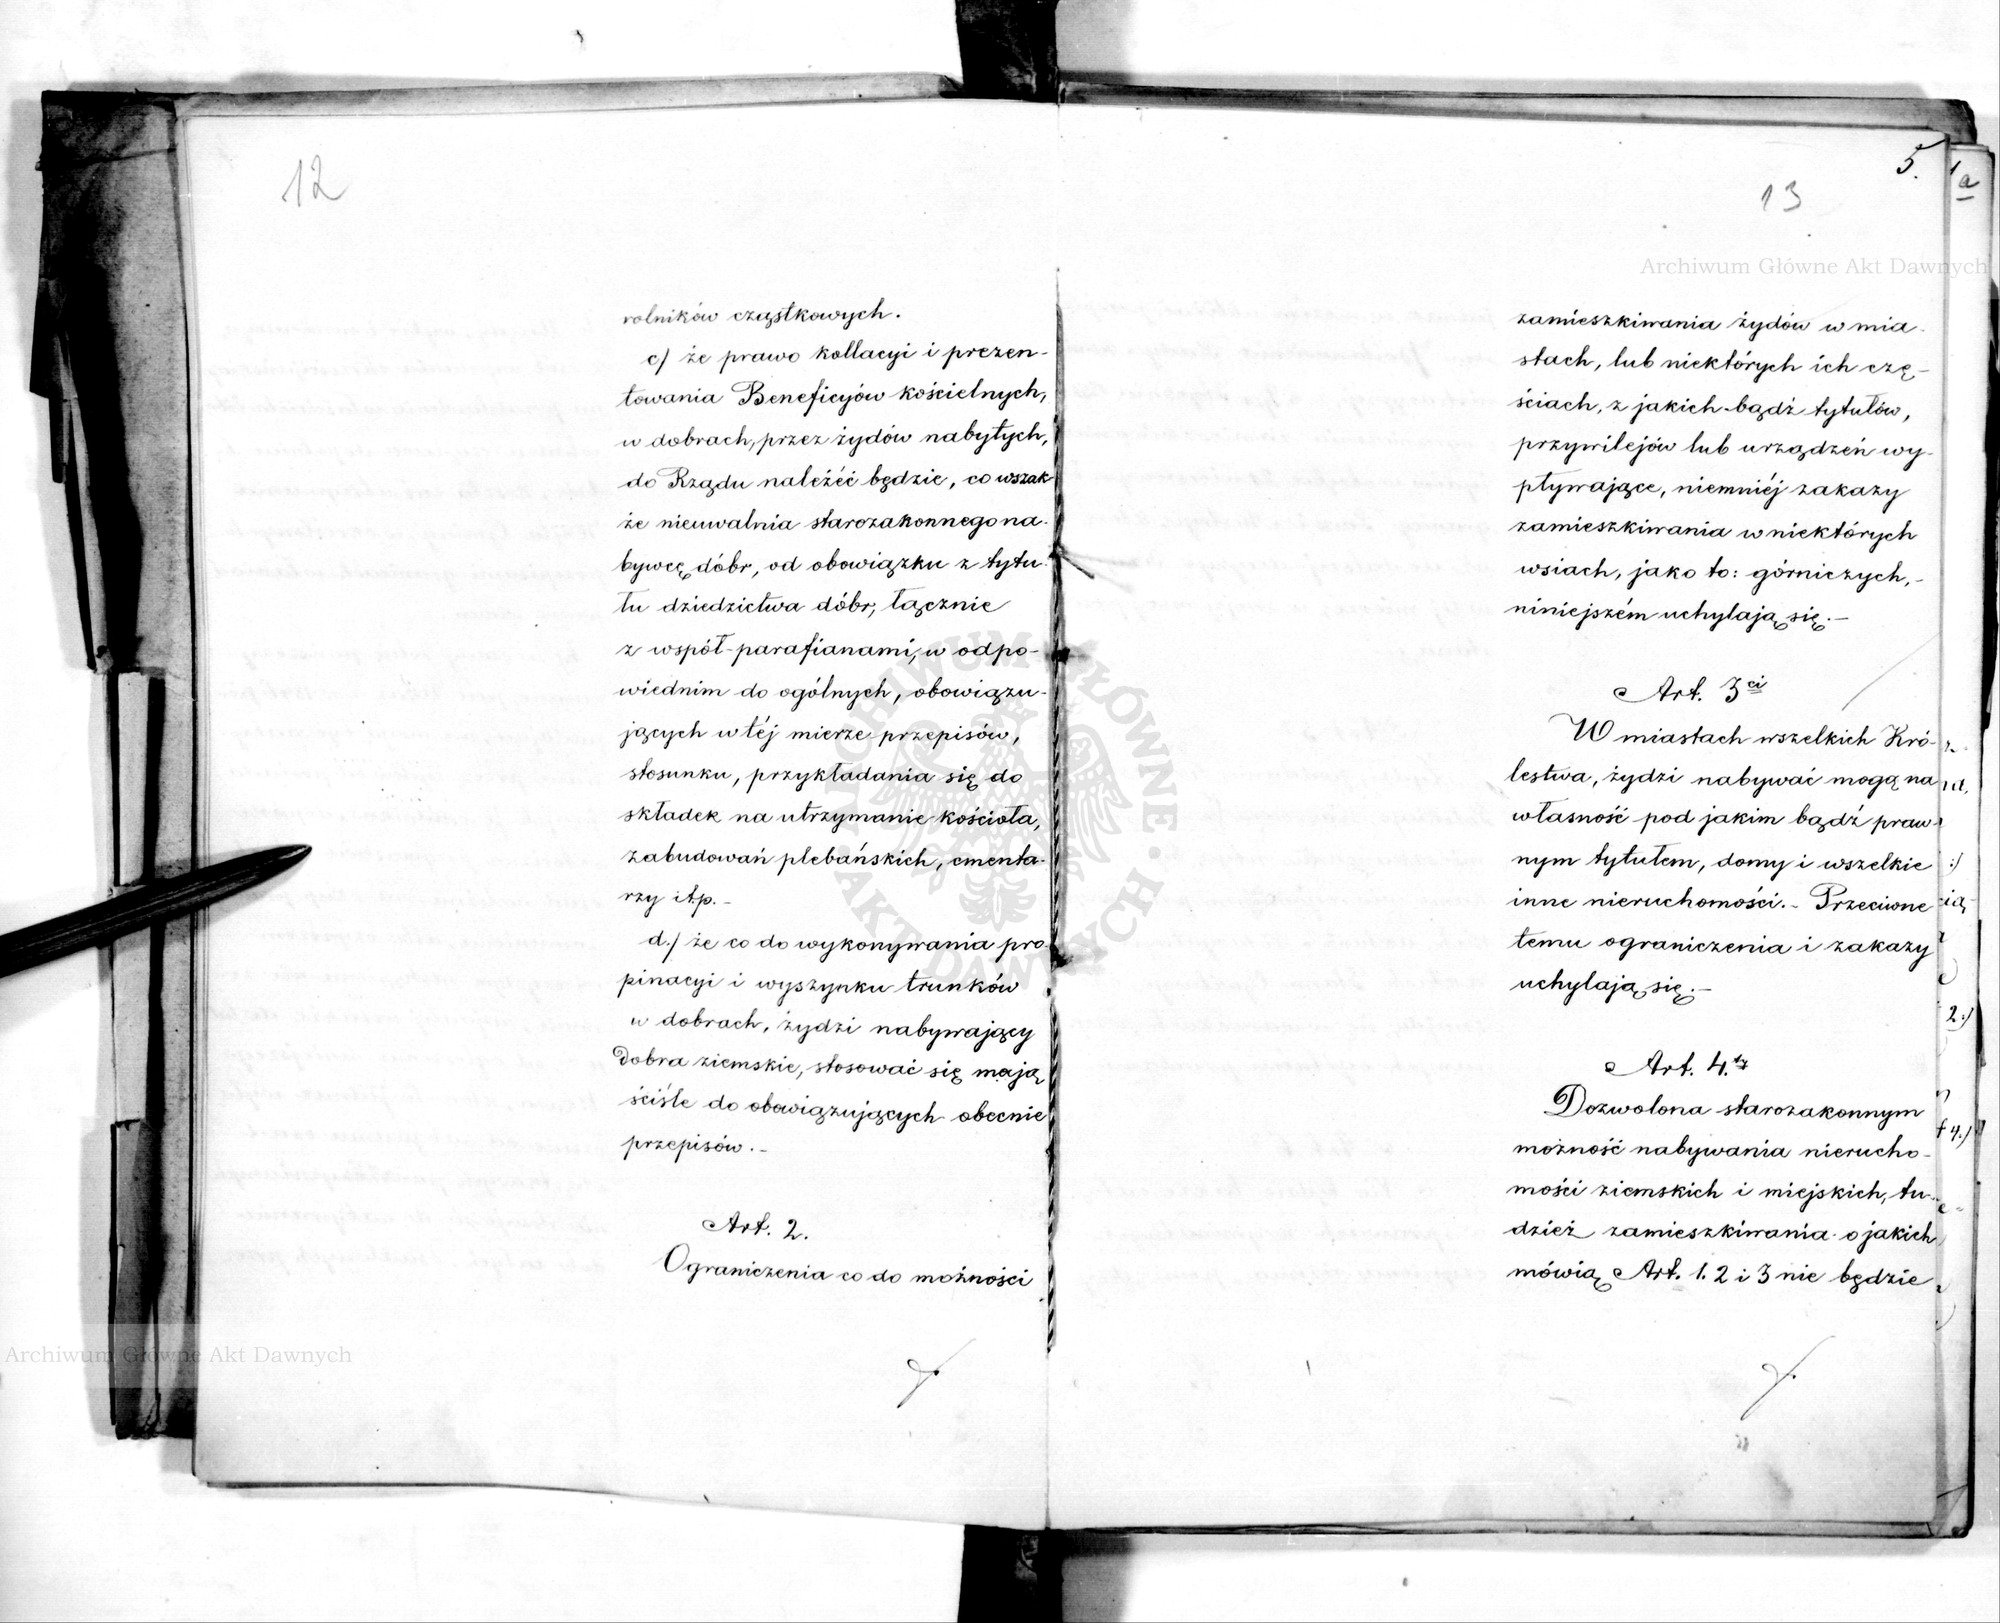 12
rolników cząstkowych.
c/ że prawo kollacyi i prezen-
towania Beneficyów kościelnych,
w dobrach, przez żydów nabytych,
do Rządu należéć będzie, co wszak
że nieuwalnia starozakonnego na-
bywcę dóbr, od obowiązku z tytu-
łu dziedzictwa dóbr, łącznie
z współ-parafianami, w odpo-
wiednim do ogólnych, obowiązu-
jących w téj mierze przepisów,
stosunku, przykładania się do
składek na utrzymanie kościoła,
zabudowań plebańskich, cmenta-
rzy itp. -
d./ że co do wykonywania pro-
pinacyi i wyszynku trunków
w dobrach, żydzi nabywający
Dobra ziemskie, stosować się mają
ściśle do obowiązujących obecnie
przepisów. -
Art. 2.
Ograniczenia co do możności
5.
13
a
Archiwum Główne Akt Dawnych
zamieszkiwania żydów w mia-
stach, lub niektórych ich czę-
ściach, z jakich-bądź tytułów,
przywilejów lub urządzeń wy-
pływające, niemniéj zakazy
zamieszkiwania w niektórych
wsiach, jako to: górniczych, -
niniejszém uchylają się. -
Art. 3ci
W miastach wszelkich Kró-
lestwa, żydzi nabywać mogą na
własność pod jakim bądź praw-
nym tytułem, domy i wszelkie
inne nieruchomości. - Przeciwne
temu ograniczenia i zakazy
uchylają się. -
Art. 4.ty
Dozwolona starozakonnym
możność nabywania nierucho-
mości ziemskich i miejskich, tu-
dzież zamieszkiwania o jakich
mówią Art. 1. 2 i 3 nie będzie
Archiwum Główne Akt Dawnych
ARCHIWUM GŁÓWNE AKT DAWNYCH